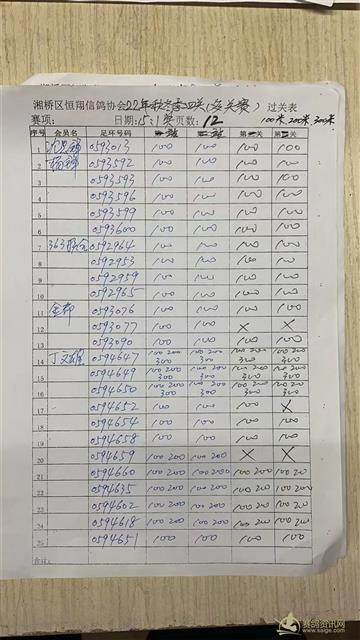 湘桥区恒翔信鸽协会22年秋冬季四关(多关赛)过关表
赛项: 日期:15:1奖页数:12 100米,200米,300米
序号 会员名 足环号码 关 关
1 0593013 100 100 100 100
2 0593592 100 100 100 100
3 0593593 100 100 100 100
4 0593596 100 100 100 100
5 0593599 100 100 100 100
6 0593600 100 100 100 100
7 0592964 100 100 100 100
8 0592953 100 100 100 100
9 0592959 100 100 100 100
10 0592965 100 100 100 100
11 0593076 100 100 100 100
12 0593077 100 100 X X
13 0593090 100 100 100 100
14 0594647 100 200 300 100 200 300 100 200 300 100 200 300
15 0594649 100 200 300 100 200 300 100 200 300 100 200 300
16 0594650 100 200 300 100 200 300 100 200 300 100 200 300
17 0594652 100 100 100 X
18 0594654 100 100 100 100
19 0594658 100 100 100 100
20 0594659 100 200 100 200 X X
21 0594660 100 200 100 200 100 200 100 200
22 0594635 100 200 100 200 100 200 100 200
23 0594602 100 200 100 200 100 200 100 200
24 0594618 100 200 100 200 100 200 100 200
25 0594651 100 100 100 100
合计:
赛鸽资讯网
www.saige.com